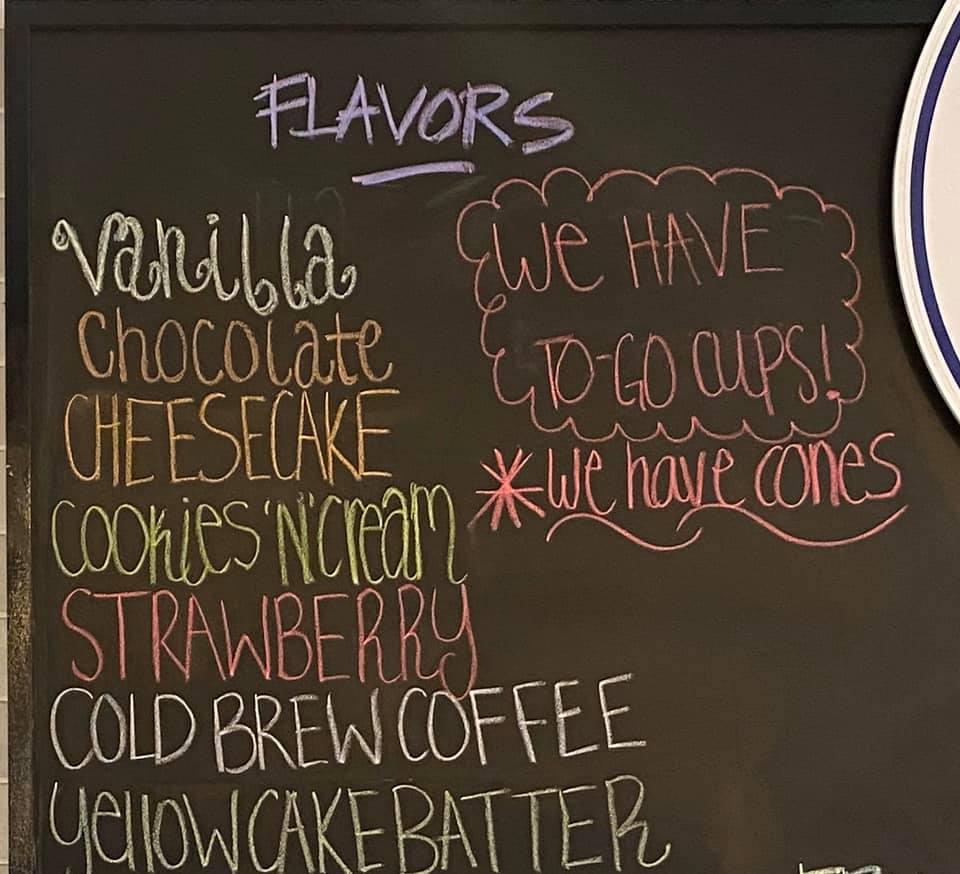 FLAVORS
Vanilla
Chocolate
CHEESECAKE
Cookies 'N' Cream
STRAWBERRY
COLD BREW COFFEE
Yellow CAKE BATTER
We HAVE
TO-GO CUPS!
*We have cones